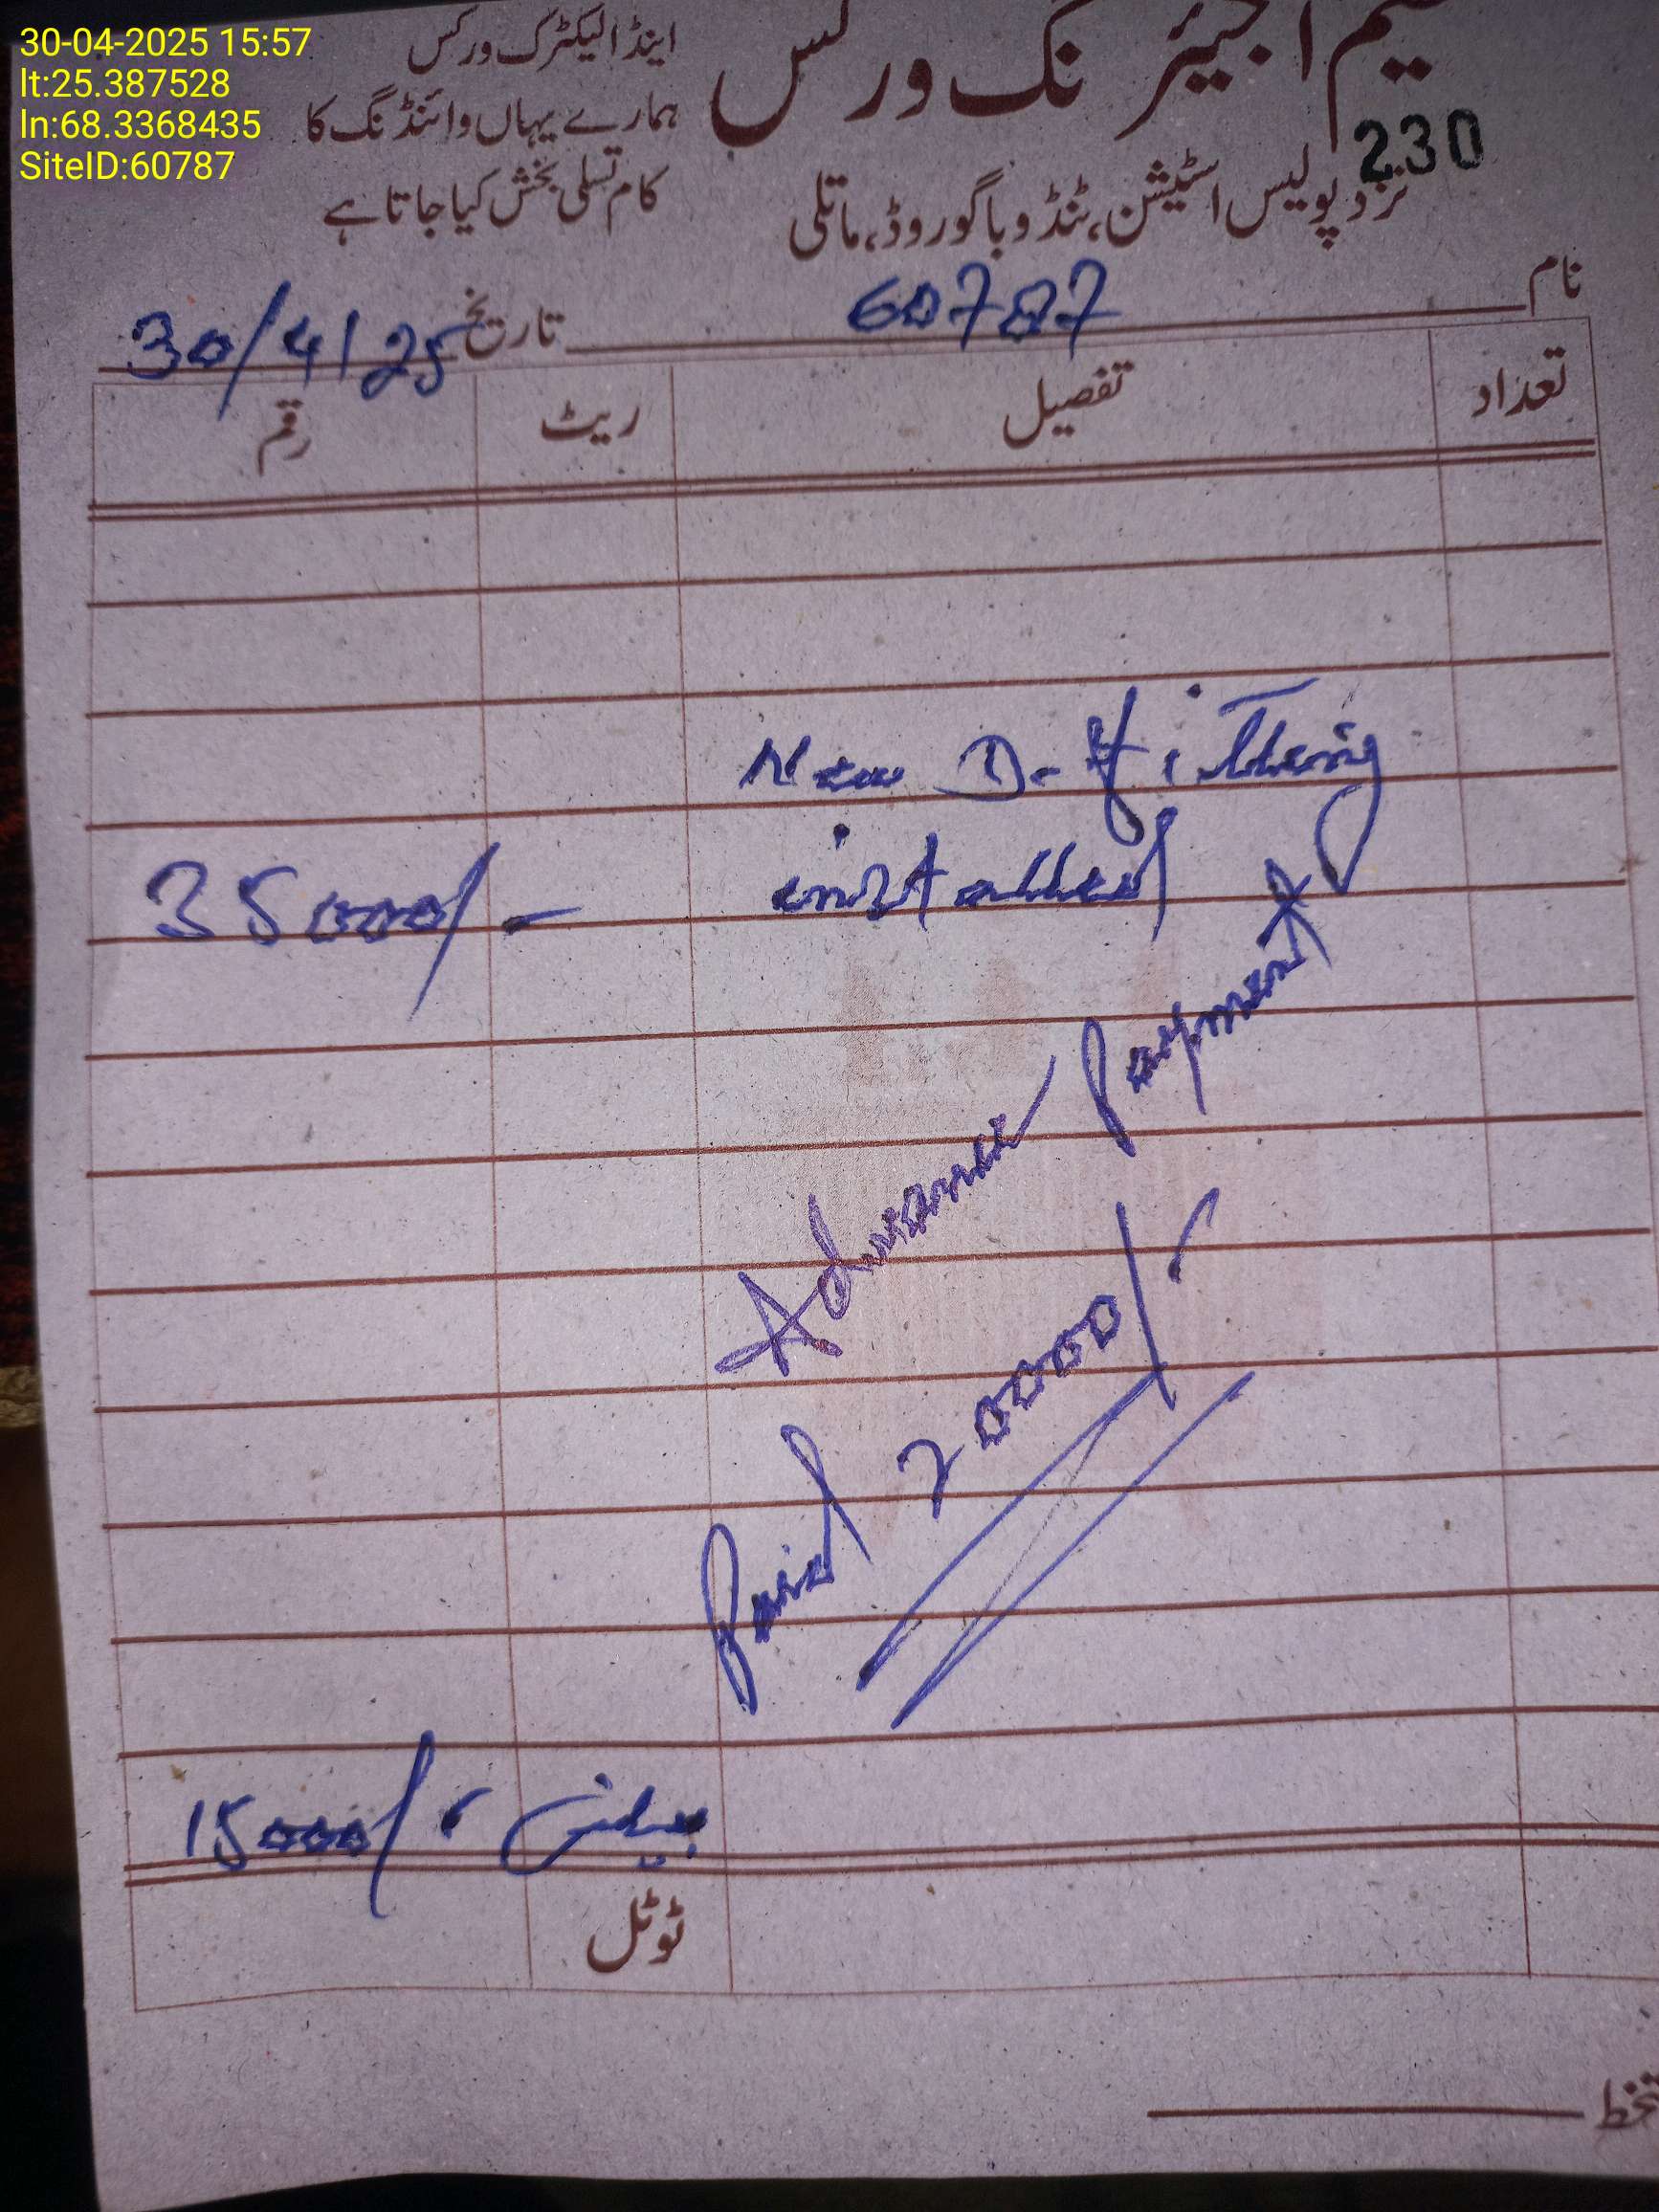 30-04-2025 15:57
lt:25.387528
ln:68.3368435
SiteID:60787
نگ ورکس
اینڈ الیکٹرک ورکس
ہمارے یہاں وائنڈنگ کا
کام تسلی بخش کیا جاتا ہے
230
نزد پولیس اسٹیشن، ٹنڈو باگو روڈ، ماتلی
نام 60787 تاریخ 30/4/25
تعداد تفصیل ریٹ رقم
New D. fitting
installed 35000/-
Advance Payment
Paid 20000/-
بیلنس 15000/-
ٹوٹل